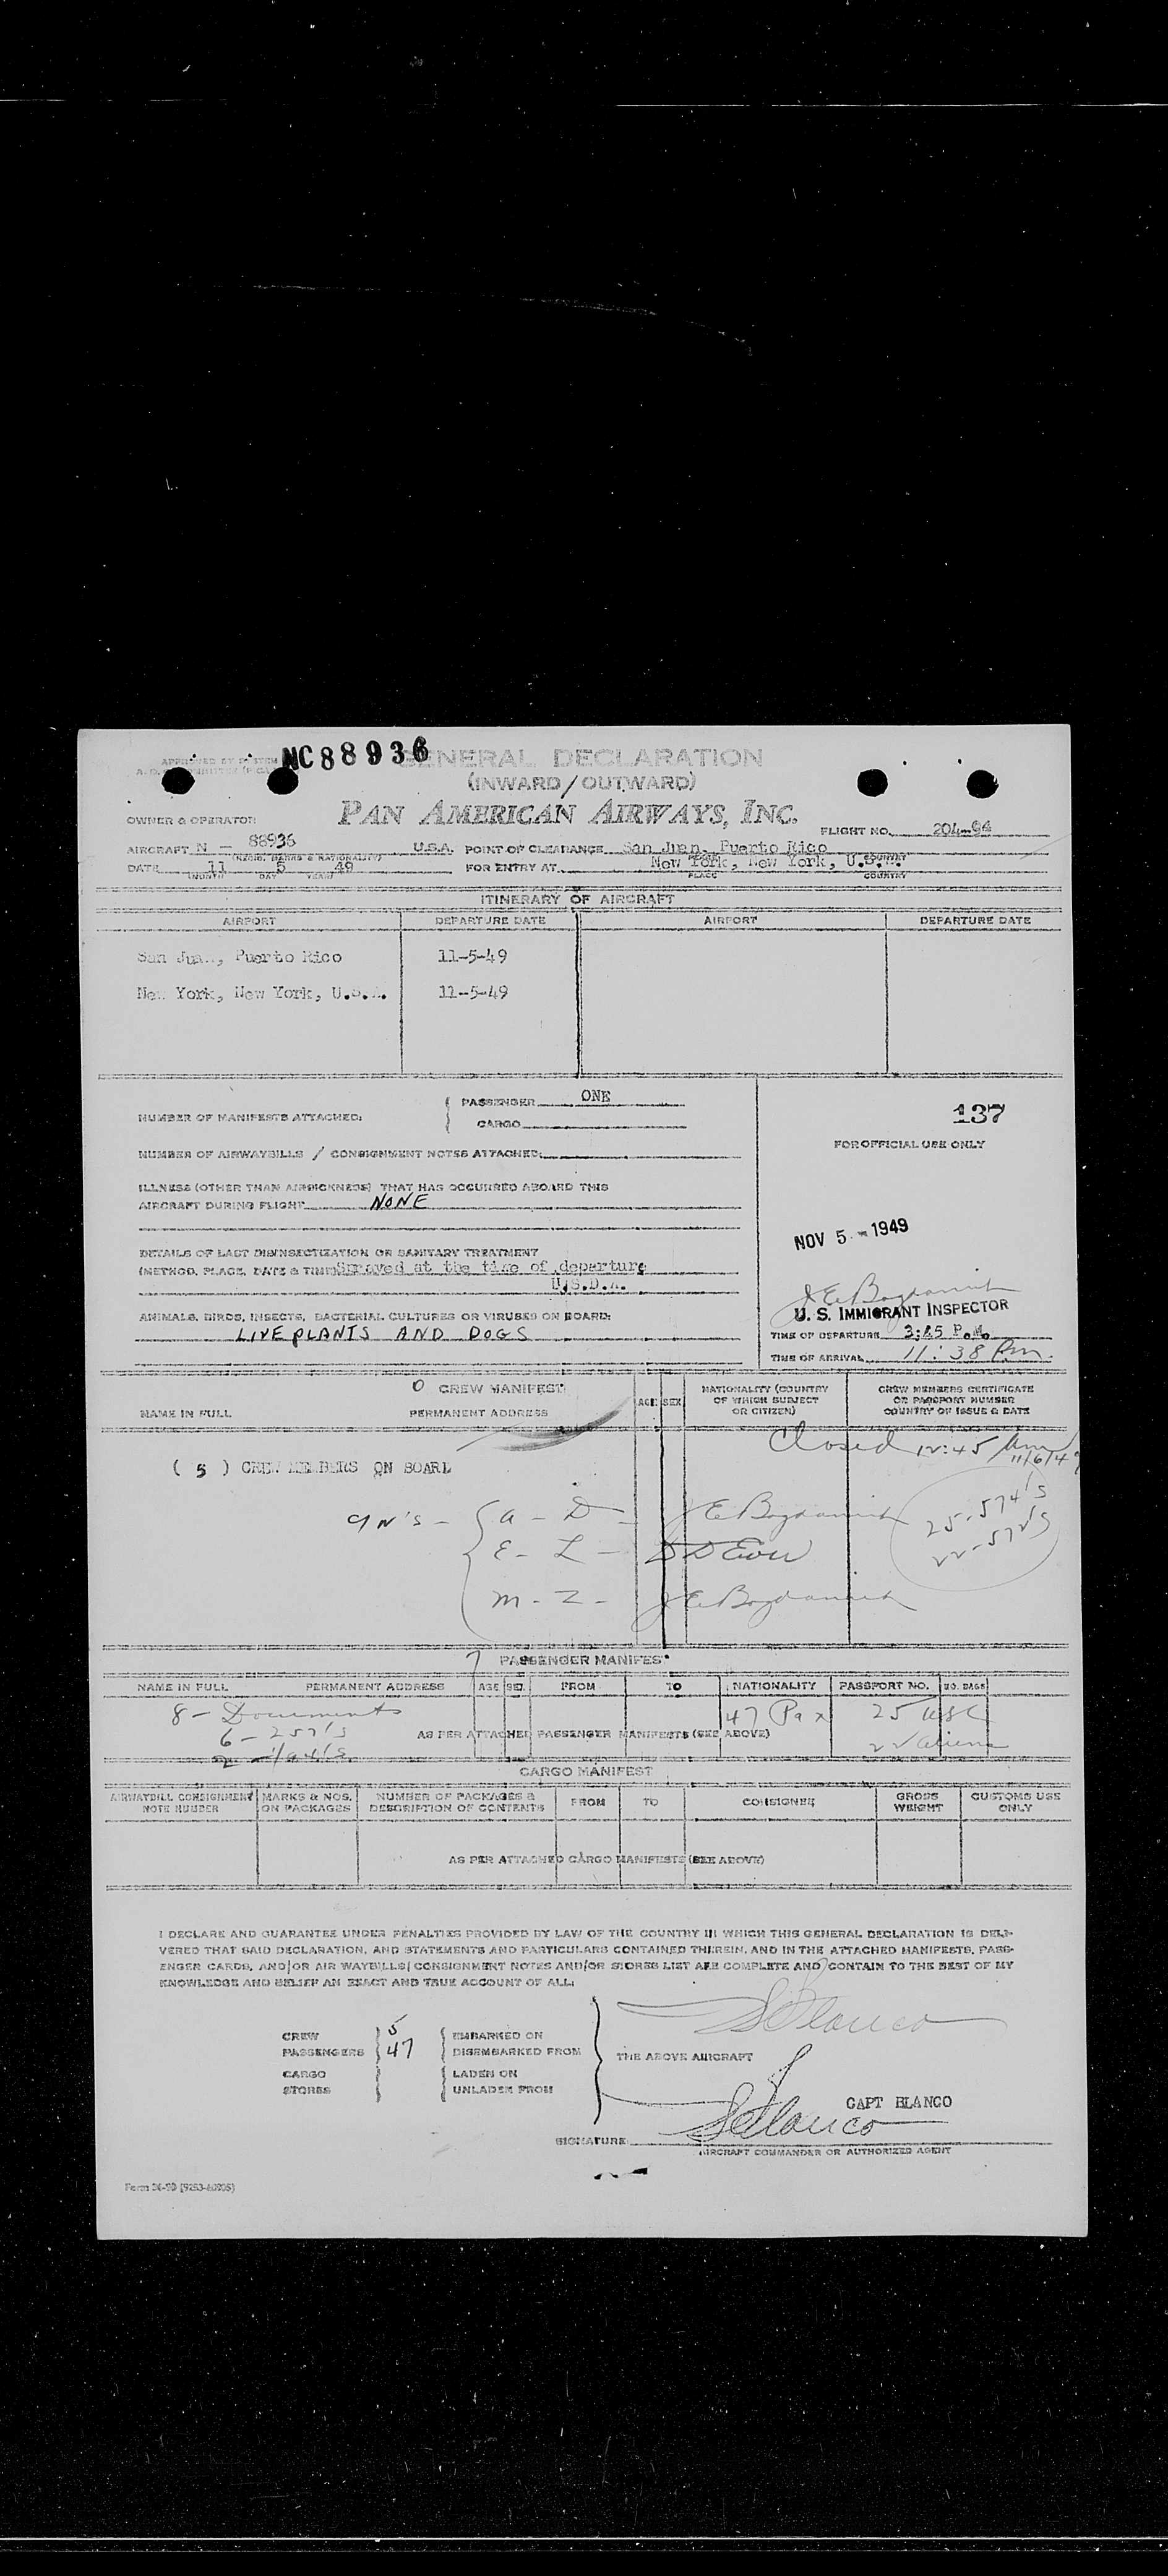 NC88936
GENERAL DECLARATION
(INWARD/OUTWARD)
PAN AMERICAN AIRWAYS, INC.
OWNER & OPERATOR:
FLIGHT NO. 204-
AIRCRAFT N - 88936 U.S.A. POINT OF CLEARANCE San Juan, Puerto Rico
DATE 11 5 49 FOR ENTRY AT New York, New York, U.S.A.
MONTH DAY YEAR PLACE COUNTRY
ITINERARY OF AIRCRAFT
AIRPORT DEPARTURE DATE AIRPORT DEPARTURE DATE
San Juan, Puerto Rico 11-5-49
New York, New York, U.S.A. 11-5-49
NUMBER OF MANIFESTS ATTACHED: PASSENGER ONE
CARGO
137
FOR OFFICIAL USE ONLY
NUMBER OF AIRWAYBILLS / CONSIGNMENT NOTES ATTACHED:
ILLNESS (OTHER THAN AIRSICKNESS) THAT HAS OCCURRED ABOARD THIS
AIRCRAFT DURING FLIGHT NONE
NOV 5 - 1949
DETAILS OF LAST DISINSECTIZATION OR SANITARY TREATMENT
(METHOD, PLACE, DATE & TIME) Sprayed at the time of departure
U.S.D.A.
U. S. IMMIGRANT INSPECTOR
ANIMALS, BIRDS, INSECTS, BACTERIAL CULTURES OR VIRUSES ON BOARD:
LIVE PLANTS AND DOGS
TIME OF DEPARTURE 3:45 P.M.
TIME OF ARRIVAL 11:38 Pm.
O CREW MANIFEST
NAME IN FULL PERMANENT ADDRESS AGE SEX NATIONALITY (COUNTRY OF WHICH SUBJECT OR CITIZEN) CREW MEMBERS CERTIFICATE OR PASSPORT NUMBER COUNTRY OF ISSUE & DATE
Closed 12:45 Am 11/6/49
( 5 ) CREW MEMBERS ON BOARD
9N's - A - D -
25-574's
22-572's
E - L -
M - Z -
PASSENGER MANIFEST
NAME IN FULL PERMANENT ADDRESS AGE SEX FROM TO NATIONALITY PASSPORT NO. NO. BAGS
8 - Documents 47 Pax 25 USC
6 - 257's
AS PER ATTACHED PASSENGER MANIFESTS (SEE ABOVE) 22 Aliens
CARGO MANIFEST
AIRWAYBILL CONSIGNMENT NOTE NUMBER MARKS & NOS. ON PACKAGES NUMBER OF PACKAGES & DESCRIPTION OF CONTENTS FROM TO CONSIGNEE GROSS WEIGHT CUSTOMS USE ONLY
AS PER ATTACHED CARGO MANIFESTS (SEE ABOVE)
I DECLARE AND GUARANTEE UNDER PENALTIES PROVIDED BY LAW OF THE COUNTRY IN WHICH THIS GENERAL DECLARATION IS DELI-
VERED THAT SAID DECLARATION, AND STATEMENTS AND PARTICULARS CONTAINED THEREIN, AND IN THE ATTACHED MANIFESTS, PASS-
ENGER CARDS, AND/OR AIR WAYBILLS/CONSIGNMENT NOTES AND/OR STORES LIST ARE COMPLETE AND CONTAIN TO THE BEST OF MY
KNOWLEDGE AND BELIEF AN EXACT AND TRUE ACCOUNT OF ALL:
SBlanco
CREW 5 EMBARKED ON
PASSENGERS 47 DISEMBARKED FROM THE ABOVE AIRCRAFT
CARGO LADEN ON
STORES UNLADEN FROM
CAPT BLANCO
SIGNATURE SBlanco
AIRCRAFT COMMANDER OR AUTHORIZED AGENT